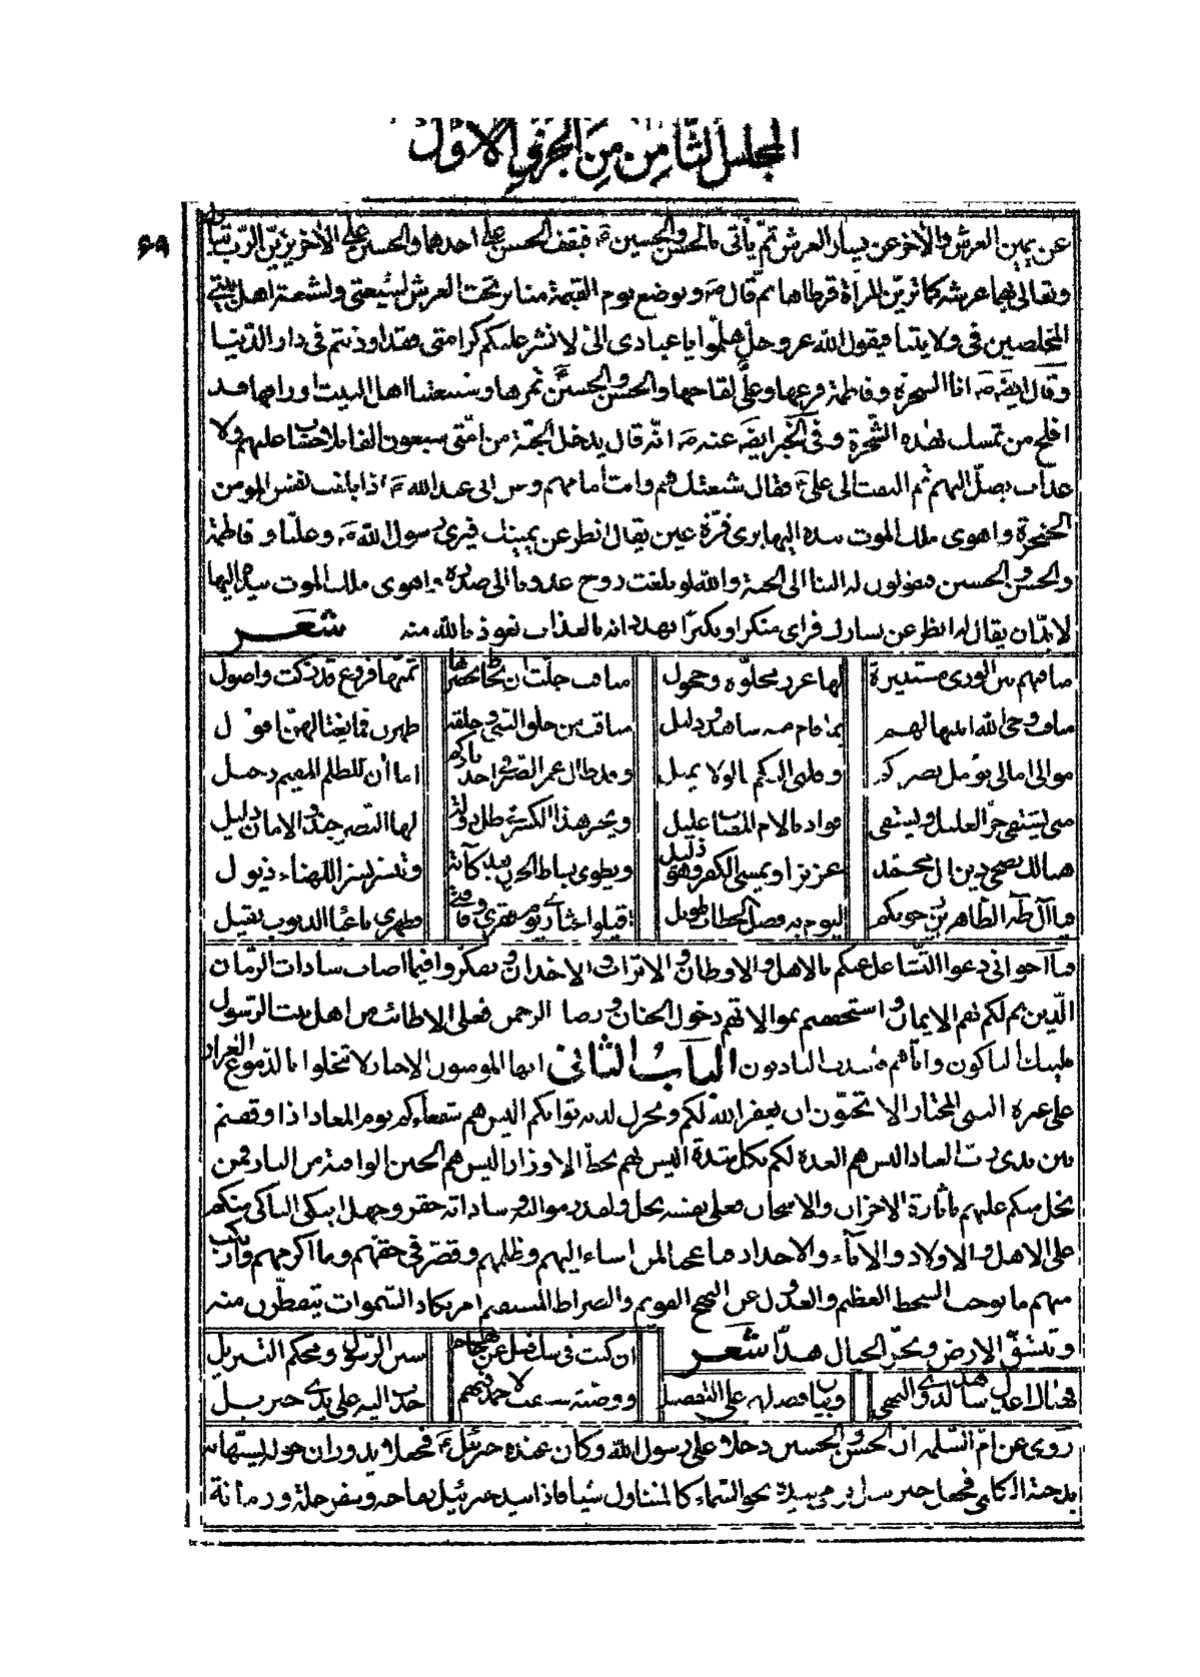 المجلس الثامن من الجزء الاول
٦٩
عن يمين العرش والأخر عن يسار العرش ثم يأتى بالحسن والحسين ع فيقف الحسن على احدهما والحسين على الأخر يزين الرب تبارك
وتعالى بهما عرشه كما تزين المرأة قرطاها ثم قال ص ويوضع يوم القيمة منابر تحت العرش لشيعتى ولشيعة اهل بيتى
المخلصين فى ولايتنا فيقول الله عز وجل هلموا يا عبادى الى لانشر عليكم كرامتى فقد اوذيتم فى دار الدنيا
وقال ايضا ص انا الشجرة وفاطمة فرعها وعلى لقاحها والحسن والحسين ثمرها وشيعتنا اهل البيت اوراقها قد
افلح من تمسك بهذه الشجرة وفى الخبر ايضا عنه ص انه قال يدخل الجنة من امتى سبعون الفا بلا حساب عليهم ولا
عذاب يصل اليهم ثم التفت الى على ع فقال شيعتك هم وانت امامهم وعن ابى عبد الله ع اذا بلغت نفس المؤمن
الحنجرة واهوى ملك الموت بيده اليها يرى قرة عين يقال انظر عن يمينك فيرى رسول الله ص وعليا وفاطمة
والحسن والحسين فيقولون له الينا الى الجنة والله لو بلغت روح عدونا الى صدره واهوى ملك الموت بيده اليها
لا بد ان يقال له انظر عن يسارك فيرى منكرا ونكيرا يهددانه بالعذاب نعوذ بالله منه شعر
لها غرر مجلوة وحجول
تمتها فروع قد زكت واصول
مناقب وحى الله اثبتها لهم
بما قام منه شاهد ودليل
مناقب من خلق النبى وخلقه
موالى امالى يؤمل نصركم
وقلبى اليكم بالولاء يميل
وقد طال عمر الصبر
اما آن للظلم المقيم رحيل
متى يشتفى حر الغليل ويشتفى
فؤاد بالام المصاب عليل
لها النصر جند والامان دليل
هنالك يضحى دين ال محمد
عزيزا ويمسى الكفر وهو ذليل
ويطوى بساط الحزن بعد كآبة
وتنشر نشر اللهناء ذيول
فيا آل طه الطاهرين رجوتكم
ليوم به فصل الخطاب طويل
وظهرى باعباء الذنوب ثقيل
فيا اخوانى دعوا التشاغل عنكم بالاهل والاوطان والاتراب والاخدان وتفكروا فيما اصاب سادات الزمان
الذين بهم لكم تم الايمان واستحققتم بموالاتهم دخول الجنان ورضا الرحمن فعلى الاطائب من اهل بيت الرسول
فليبك الباكون واياهم فليندب النادبون الباب الثانى ايها المؤمنون الاخيار لا تبخلوا بالدموع الغزار
على عترة النبى المختار الا تحبون ان يغفر الله لكم ويجزل لديه ثوابكم اليس هم شفعاءكم يوم المعاد اذا وقفتم
بين يدى رب العباد اليس هم العدة لكم بكل شدة اليس بهم يحط الاوزار اليس هم الجنن الواقية من النار فمن
بخل منكم عليهم باثارة الاحزان والاشجان فعلى نفسه بخل ولقدر مواليه وساداته حقر وجهل ايبكى الباكى منكم
على الاهل والاولاد والآباء والاجداد فيا عجبا لمن اساء اليهم وظلمهم وقصر فى حقهم وما اكرمهم وارتكب
منهم ما يوجب السخط العظيم والعدول عن النهج القويم والصراط المستقيم امر تكاد السموات يتفطرن منه
وتنشق الارض وتخر الجبال هدا شعر
ان كنت فى شك فسل عن حالهم
سنن الرسول ومحكم التنزيل
فهناك اعدل شاهد لذوى النهى
وبيان فضلهم على التفصيل
جاءت اليه على يدى جبريل
روى عن ام سلمه ان الحسن والحسين دخلا على رسول الله وكان عنده جبرئيل ع فجعلا يدوران حوله يشبهانه
بدحية الكلبى فجعل جبرئيل يومى بيده نحو السماء كالمتناول شيئا فاذا بيد جبرئيل تفاحة وسفرجلة ورمانة